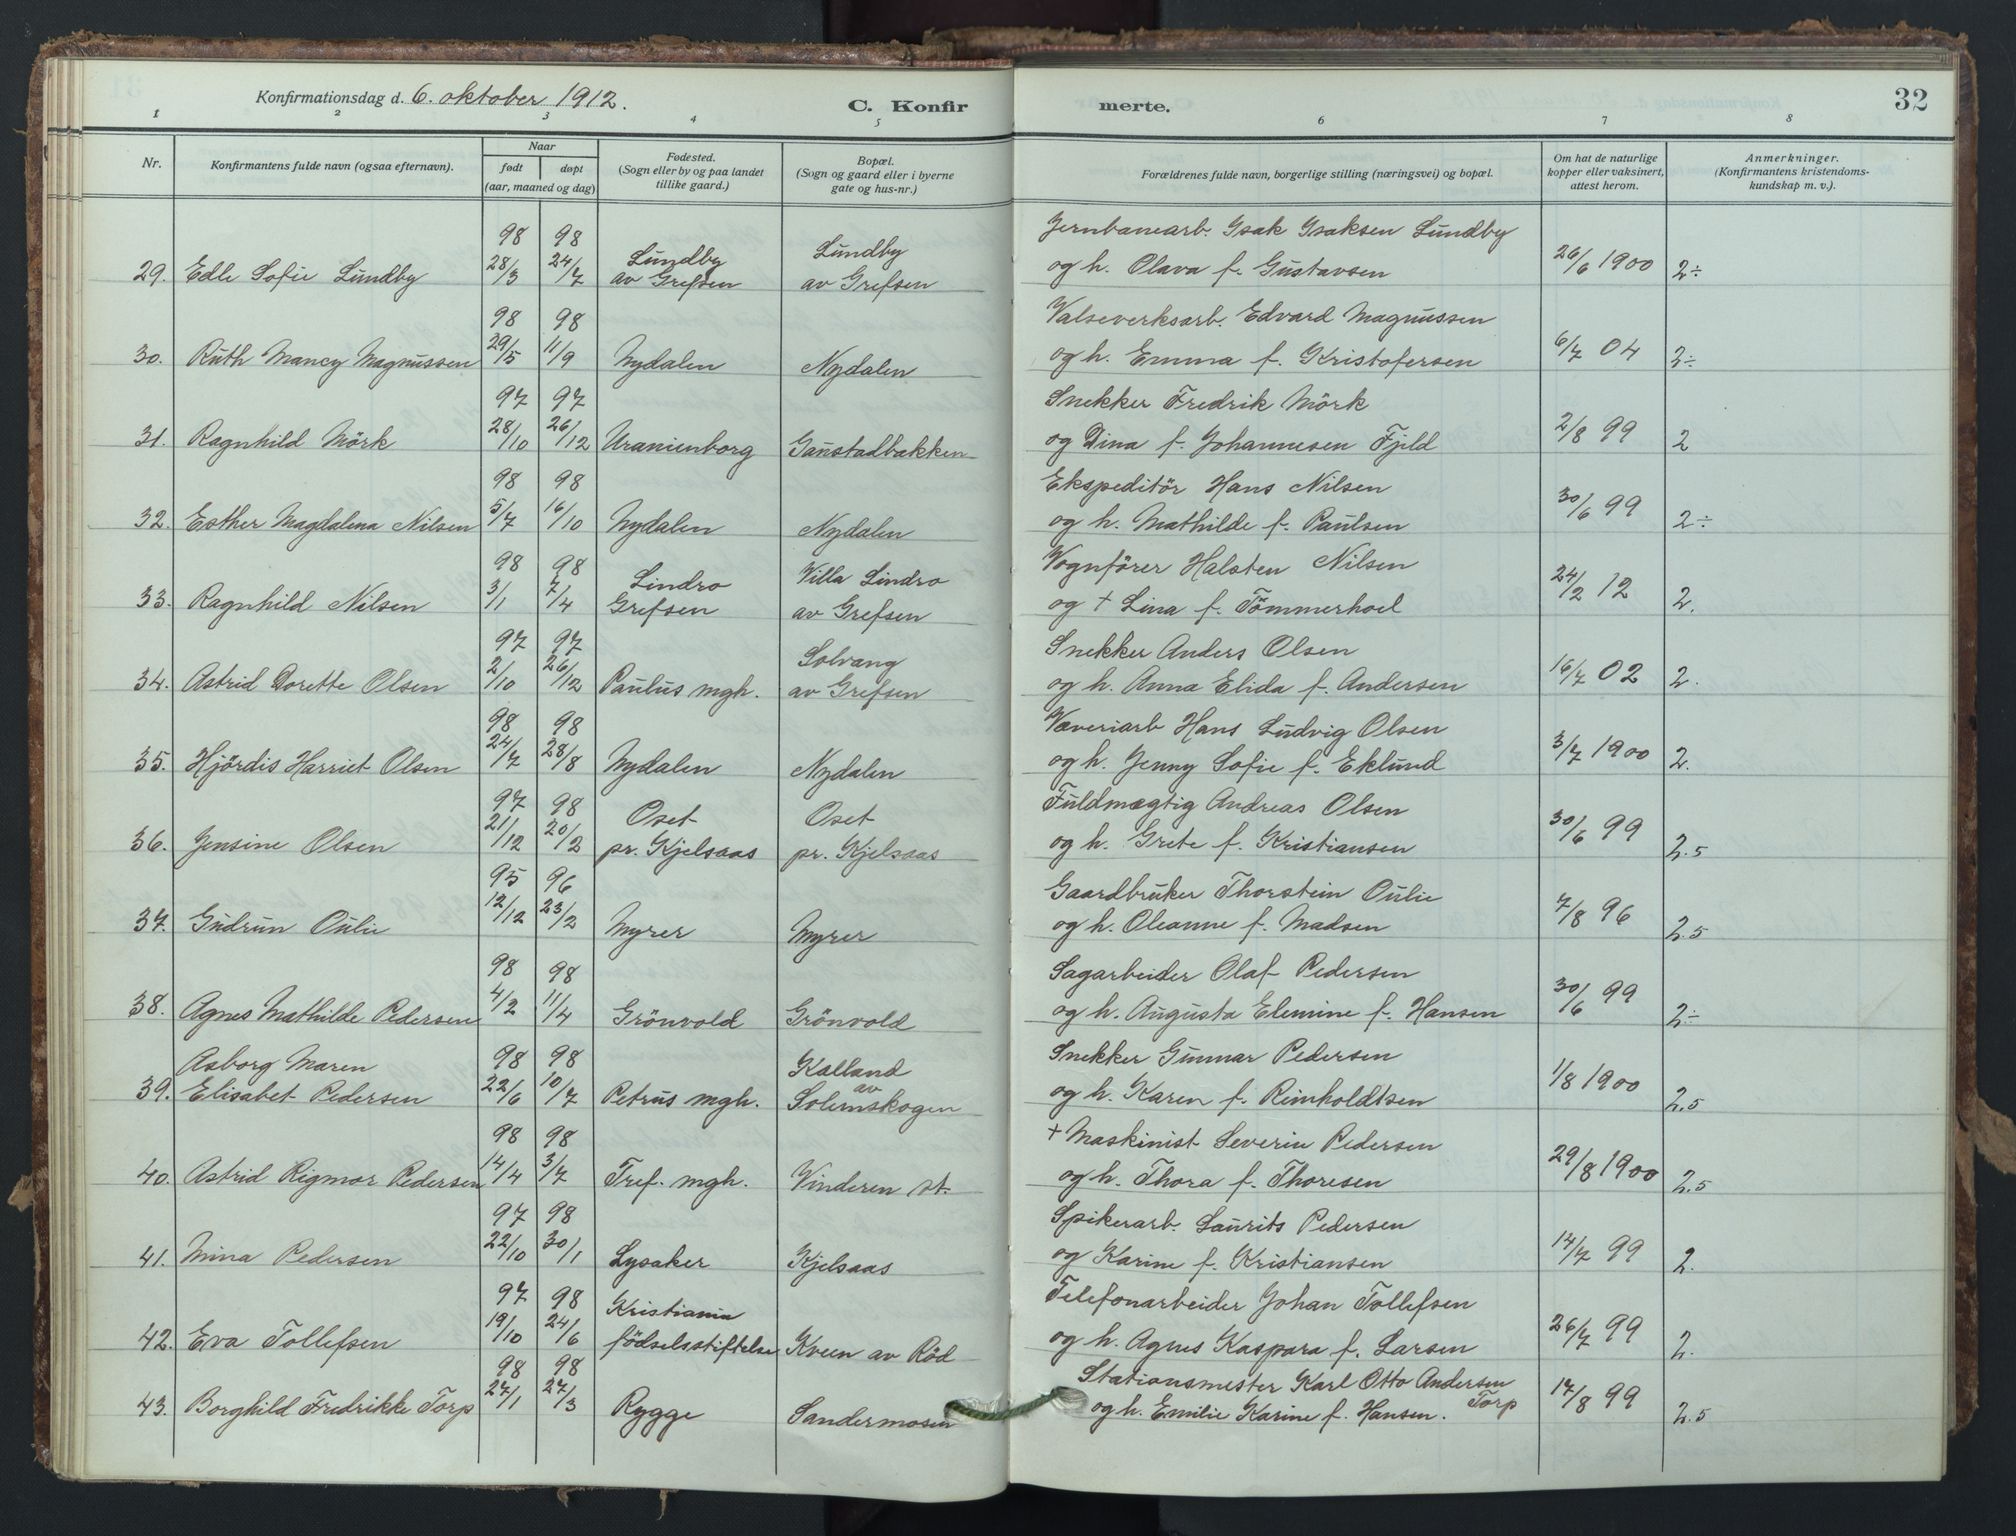 Konfirmationsdag d. 6. oktober 1912. C. Konfirmerte. 32
1 2 3 4 5 6 7 8
Nr. Konfirmantens fulde navn (ogsaa efternavn). Naar født døpt (aar, maaned og dag) Fødested. (Sogn eller by og paa landet tillike gaard.) Bopæl. (Sogn og gaard eller i byerne gate og hus-nr.) Forældrenes fulde navn, borgerlige stilling (næringsvei) og bopæl. Om hat de naturlige kopper eller vaksinert, attest herom. Anmerkninger. (Konfirmantens kristendomskundskap m. v.).
98 98 Lundby Lundby Jernbanearb. Isak Isaksen Lundby
29. Edle Sofie Lundby 28/3 24/7 av Grefsen av Grefsen og h. Olava f. Gustavsen 26/6 1900 2÷
98 98 Valseverksarb. Edvard Magnussen
30. Ruth Nancy Magnussen 29/5 11/9 Nydalen Nydalen og h. Emma f. Kristofersen 6/7 04 2÷
97 97 Snekker Fredrik Mörk
31. Ragnhild Mörk 28/10 26/12 Uranienborg Gaustadbakken og Dina f. Johannesen Fjeld 2/8 99 2
98 98 Ekspeditör Hans Nilsen
32. Esther Magdalena Nilsen 5/7 16/10 Nydalen Nydalen og h. Mathilde f. Paulsen 30/6 99 2÷
98 98 Lindro Villa Lindro Vognförer Halsten Nilsen
33. Ragnhild Nilsen 3/1 7/4 Grefsen av Grefsen og + Lina f. Tömmerhoel 24/2 12 2.
97 97 Solvang Snekker Anders Olsen
34. Astrid Dorette Olsen 2/10 26/12 Paulus mgh. av Grefsen og h. Anna Elida f. Andersen 16/7 02 2.
98 98 Væveriarb Hans Ludvig Olsen
35. Hjördis Harriet Olsen 24/7 28/8 Nydalen Nydalen og h. Jenny Sofie f. Eklund 3/7 1900 2.
97 98 Oset Oset Fuldmægtig Andreas Olsen
36. Jensine Olsen 21/12 20/2 pr. Kjelsaas pr. Kjelsaas og h. Grete f. Kristiansen 30/6 99 2.5
95 96 Gaardbruker Thorstein Oulie
37. Gudrun Oulie 12/12 23/2 Myrer Myrer og h. Oleanne f. Madsen 7/8 96 2.5
98 98 Sagarbeider Olaf Pedersen
38. Agnes Mathilde Pedersen 4/2 11/4 Grönvold Grönvold og h. Augusta Elemine f. Hansen 30/6 99 2÷
Asborg Maren 98 98 Kalland Snekker Gunnar Pedersen
39. Elisabet Pedersen 22/6 10/7 Petrus mgh. av Solemskogen og h. Karen f. Rimholdtsen 1/8 1900 2.5
98 98 + Maskinist Severin Pedersen
40. Astrid Rigmor Pedersen 14/4 3/7 Tref. mgh. Vinderen st. og h. Thora f. Thoresen 29/8 1900 2.5
97 98 Spikerarb. Laurits Pedersen
41. Mina Pedersen 22/10 30/1 Lysaker Kjelsaas og Karine f. Kristiansen 14/7 99 2.
97 98 Kristiania Telefonarbeider Johan Tollefsen
42. Eva Tollefsen 19/10 24/6 födselsstiftelse Kveen av Röd og h. Agnes Kaspara f. Larsen 26/7 99 2.
98 98 Stationsmester Karl Otto Andersen Torp
43. Borghild Fredrikke Torp 27/1 27/3 Rygge Sandermosen og h. Emilie Karine f. Hansen. 17/8 99 2.5